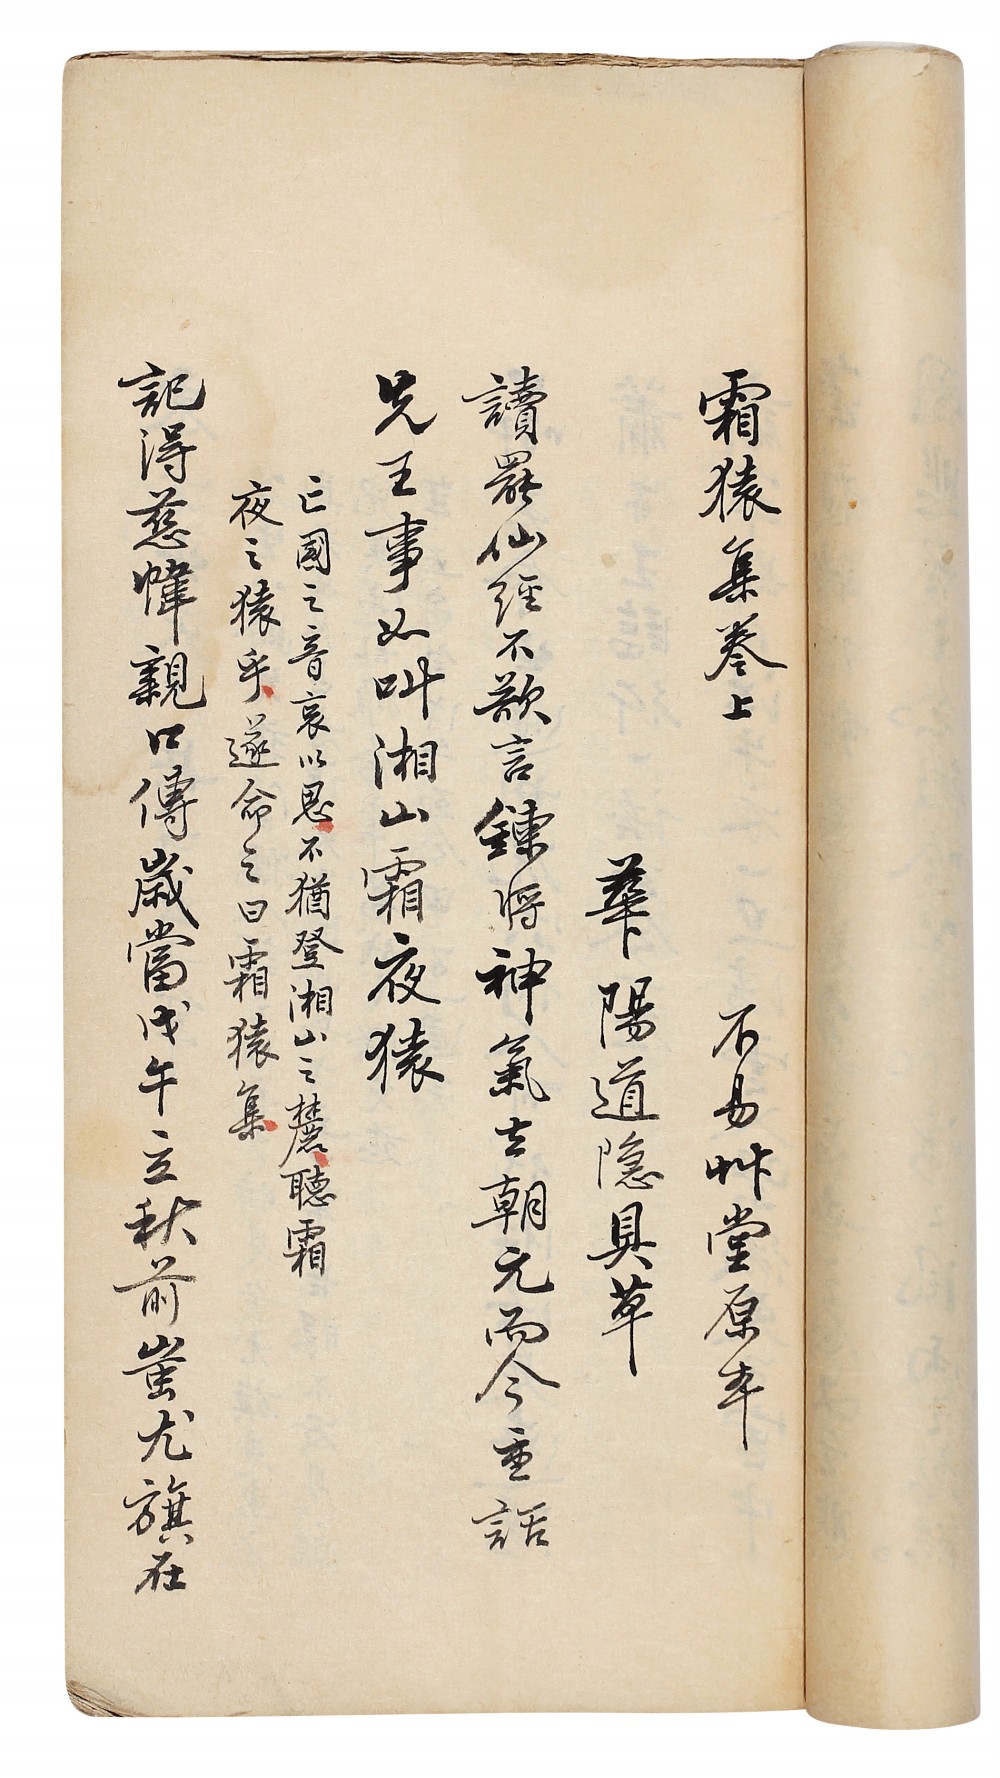 霜猿集卷上
不易艸堂原本
華陽道隐具草
讀罷仙經不欲言鍊將神氣去朝元而今重話
先王事如叫湘山霜夜猿
亡國之音哀以思不猶登湘山之麓聽霜
夜之猿乎遂命之曰霜猿集
記得慈幃親口傳歲當戊午立秋前蚩尤旗在